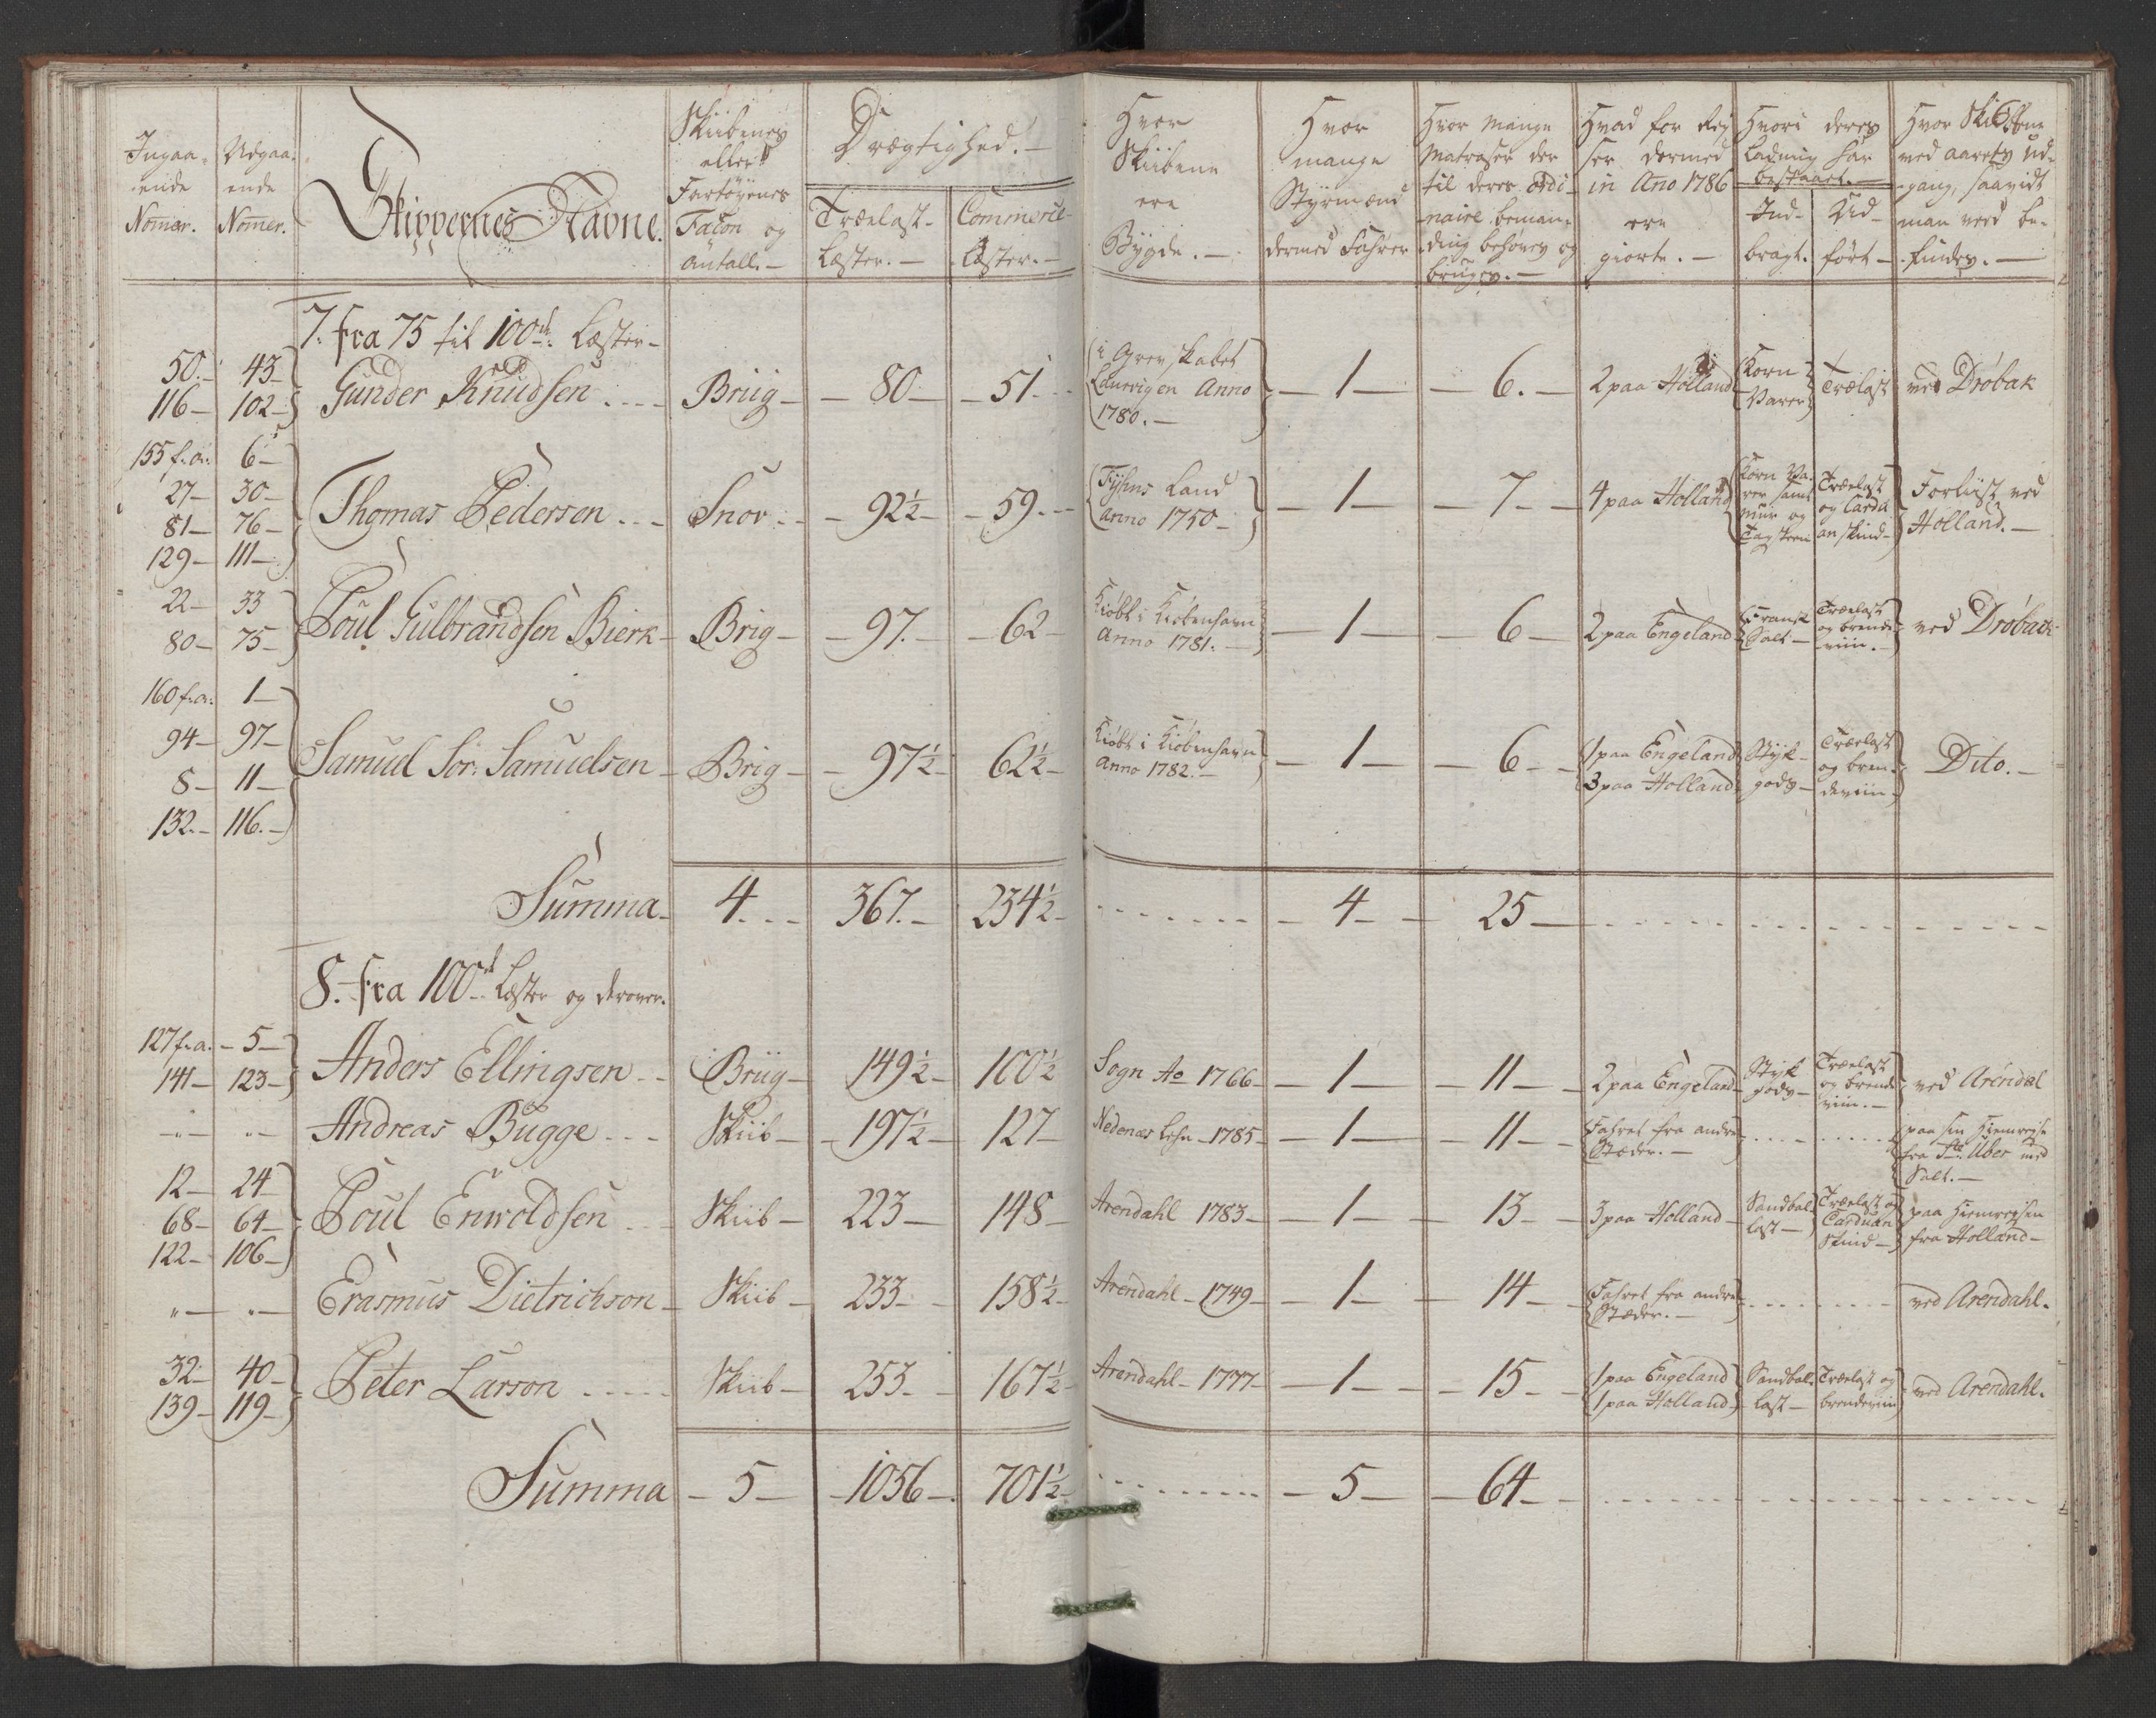 Ingaa- Udgaa-
ende ende
Nomer. Nomer.
Skippernes Navne.
Skiibenes
eller
Fartöyenes
Façon og
Antall.
Drægtighed.
Trælast- Commerce-
Læster. Læster.
Hvor
Skiibene
ere
Bygde.
Hvor
mange
Styrmænd
dermed Fahrer
Hvor mange
Matroser der
til deres ordi-
naire beman-
ding behöves og
bruges.
Hvad for Rey-
ser dermed
in Ano 1786
ere
giorte.
Hvori deres
Ladning har
bestaaet.
Ind- Ud-
bragt. fört
Hvor Skibene
ved Aarets ud-
gang, saavidt
man veed be-
findes.
7. fra 75 til 100de Læster
50. 43
116 102
Gunder Knudsen Briig 80 51
i Grevskabet
Laurvigen Anno
1780.
1 6. 2 paa Holland
Korn
Varer
Trælast ved Dröbak
155 f.a. 6
27 30
81 76
129 111
Thomas Pedersen Snov 92½ 59
Fyhns Land
Anno 1750
1 7 4 paa Holland
Korn Va-
rer samt
Mur og
Tagsteen
Trælast
og Cardu
an skind
Forliist ved
Holland.
22 33
80 75
Poul Gulbrandsen Bierk Brig 97. 62
Kiöbt i Kiöbenhavn
Anno 1781.
1 6 2 paa Engeland
Fransk
Salt
Trælast
og brende-
viin.
ved Dröbach
160 f.a. 1
94 97
8 11
132. 116.
Samuel Sör: Samuelsen Brig 97½ 62½
Kiöbt i Kiöbenhavn
Anno 1782.
1 6
1 paa Engeland
3 paa Holland
Styk-
gods
Trælast
og bren-
deviin
Dito.
Summa 4 367. 234½ 4 25
8. fra 100de Læster og derover.
127 f.a. 5
141 123
Anders Ellingsen Briig 149½ 100½ Sogn Ao 1766 1 11 2 paa Engeland
Styk
gods
Trælast
og brende
viin.
ved Arendal
Andreas Bugge Skiib 197½ 127 Nedenæs Lehn 1785 1 11
Fahret fra andre
Stæder.
paa sin Hiemreyse
fra St. Uber med
Salt.
12 24
68 64
122 106
Poul Enwoldsen Skiib 223 148 Arendahl 1783 1 13 3 paa Holland
Sandbal
last
Trælast og
Carduan
Skind
paa Hiemreysen
fra Holland
Erasmus Dietrichson Skiib 233 158½ Arendahl 1749 1 14
Fahret fra andre
Stæder.
ved Arendahl.
32 40
139 119
Peter Larson Skiib 253 167½ Arendahl 1777 1 15
1 paa Engeland
1 paa Holland
Sandbal-
last
Trælast og
brendeviin
ved Arendahl.
Summa 5 1056 701½ 5 64